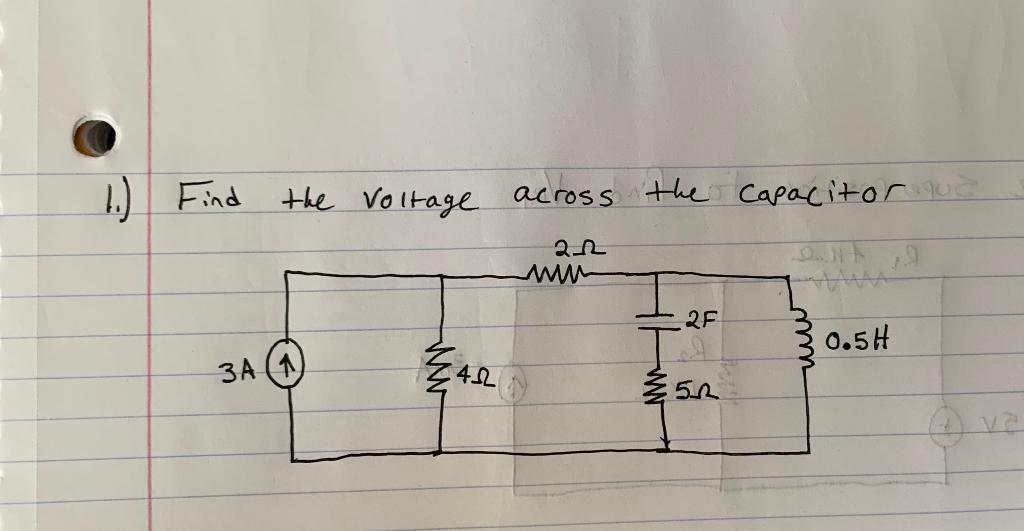 1.) Find the voltage across the capacitor
2Ω
2F
0.5H
3A
4Ω
5Ω
5V